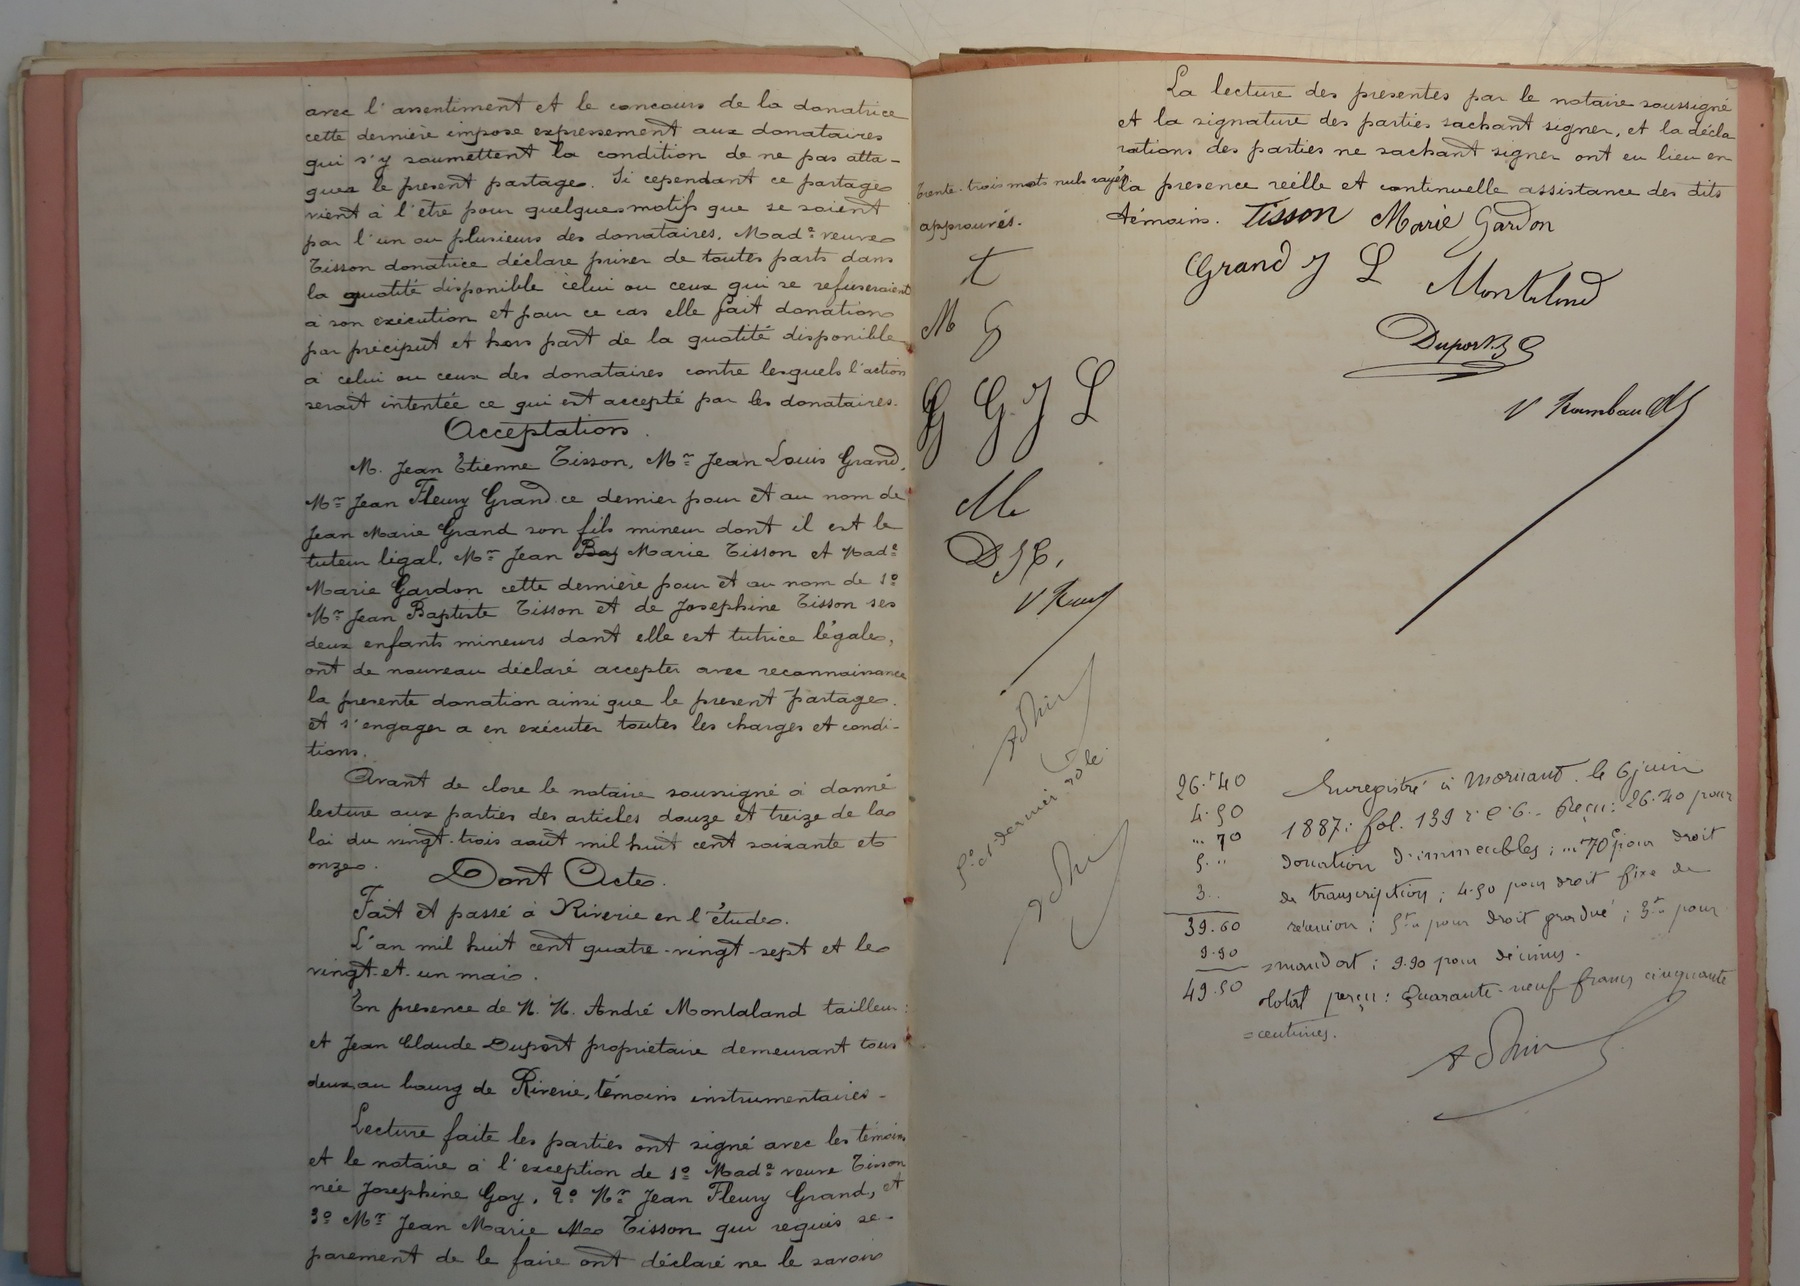 avec l'assentiment et le concours de la donatrice
cette dernière impose expressement aux donataires
qui s'y soumettent la condition de ne pas atta-
quer le présent partage. Si cependant ce partage
vient à l'être pour quelques motifs que se soient
par l'un ou plusieurs des donataires, Made veuve
Tisson donatrice déclare priver de toutes parts dans
la quotité disponible celui ou ceux qui se refuseraient
à son exécution et pour ce cas elle fait donation
par préciput et hors part de la quotité disponible
à celui ou ceux des donataires contre lesquels l'action
serait intentée ce qui est accepté par les donataires.
Acceptation.
M. Jean Etienne Tisson, Mr Jean Louis Grand,
Mr Jean Fleury Grand ce dernier pour et au nom de
Jean Marie Grand son fils mineur dont il est le
tuteur légal, Mr Jean Marie Tisson et Made
Marie Gardon cette dernière pour et au nom de 1o
Mr Jean Baptiste Tisson et de Josephine Tisson ses
deux enfants mineurs dont elle est tutrice légale,
ont de nouveau déclaré accepter avec reconnaissance
la présente donation ainsi que le présent partage.
et s'engager a en exécuter toutes les charges et condi-
tions.
Avant de clore le notaire soussigné à donné
lecture aux parties des articles douze et treize de la
loi du vingt-trois août mil huit cent soixante et
onze.
Dont Acte.
Fait et passé à Riverie en l'étude.
L'an mil huit cent quatre-vingt-sept et le
vingt-et-un mai.
En présence de M. M. André Montaland tailleur
et Jean Claude Duport propriétaire demeurant tous
deux au bourg de Riverie, témoins instrumentaires-
Lecture faite les parties ont signé avec les témoins
et le notaire à l'exception de 1o Made veuve Tisson
née Josephine Goy, 2o Mr Jean Fleury Grand, et
3o Mr Jean Marie Tisson qui requis sé-
parement de le faire ont déclaré ne le savoir
La lecture des présentes par le notaire soussigné
et la signature des parties sachant signer, et la décla
rations des parties ne sachant signer ont eu lieu en
la présence réelle et continuelle assistance des dits
témoins. Tisson Marie Gardon
Grand J L Montaland
Duport J C
V Rambaud
trente-trois mots nuls rayés
approuvés.
t
M G
G J L
M
D J C.
V Ram
5e et dernier rôle
26.f40
4.50
" 70
5. "
3. "
39.60
9.90
49.50
Enregistré à Mornant. le 6 juin
1887: fol. 139 r. c. 6. Reçu: 26.40 pour
donation d'immeubles; " 70c pour droit
de transcription; 4.50 pour droit fixe de
réunion; 5f " pour droit gradué; 3f " pour
mandat; 9.90 pour décimes.
total perçu: Quarante-neuf francs cinquante
centimes.